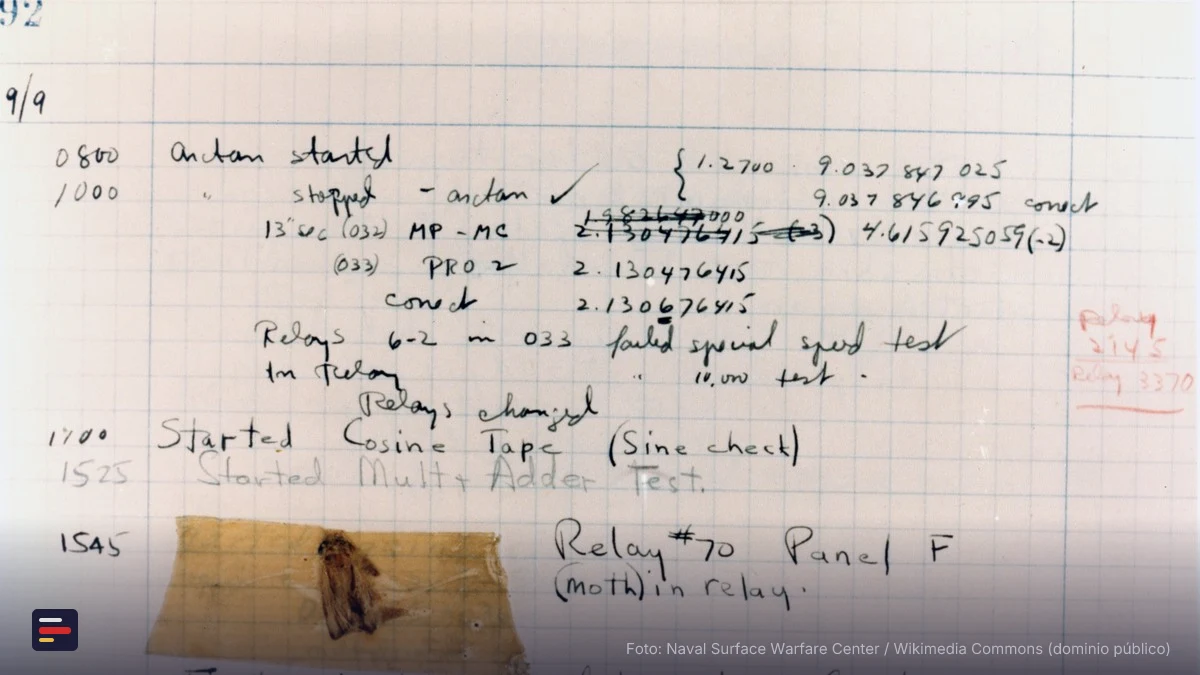 92
9/9
0800 arctan started { 1.2700 · 9.037 847 025
1000 " stopped - arctan ✓ 9.037 846 995 correct
13" sec (032) MP - MC 2.130476415 (-3) 4.615925059(-2)
(033) PRO 2 2.130476415
correct 2.130676415
Relays 6-2 in 033 failed special speed test
In Relay " 10,000 test.
Relay
2145
Relay 3370
Relays changed
1700 Started Cosine Tape (Sine check)
1525 Started Mult + Adder Test.
1545 Relay #70 Panel F
(moth) in relay.
Foto: Naval Surface Warfare Center / Wikimedia Commons (dominio público)